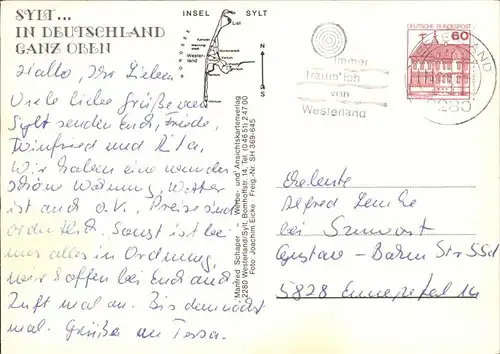 SYLT...
IN DEUTSCHLAND
GANZ OBEN
INSEL SYLT
List
Kampen
Westerland
N
S
immer
träum' ich
von
Westerland
DEUTSCHE BUNDESPOST
60
2280
Hallo, Ihr Lieben
Viele liebe Grüße von
Sylt senden Euch, Friede,
Winfried und Rita.
Wir haben eine wunder
schöne Wohnung, Wetter
ist auch o.k. Preise sind
ordentlich. Sonst ist bei
uns alles in Ordnung,
wir hoffen bei Euch auch
Ruft mal an. Bis demnächst
mal. Grüße an Tessa.
Manfred Schager - Werbe- und Ansichtskartenverlag
2280 Westerland/Sylt, Bomhoffstr. 14, Tel. (0 46 51) 2 47 00
Foto: Joachim Eicke · Freig.-Nr. SH 369-645
Alfred
bei
5828 Ennepetal 14